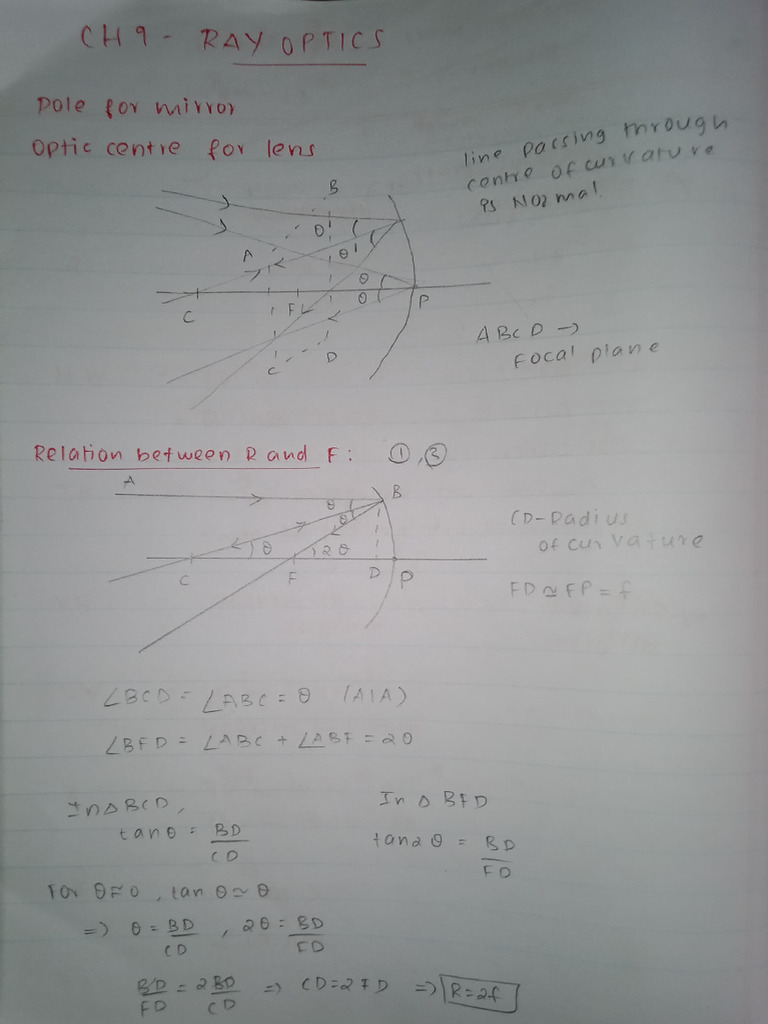 CH 9 - RAY OPTICS
Pole for mirror
Optic centre for lens
line passing through
centre of curvature
is Normal.
B
θ'
A
θ'
θ
θ
C
F
P
C
D
ABCD →
Focal plane
Relation between R and F: ①,③
A
B
θ
θ
θ
2θ
C
F
D
P
CD-Radius
of curvature
FD ≃ FP = f
∠BCD = ∠ABC = θ (AIA)
∠BFD = ∠ABC + ∠ABF = 2θ
In △ BCD,
tan θ = BD/CD
In △ BFD
tan2θ = BD/FD
For θ≈0, tan θ ≃ θ
=> θ = BD/CD , 2θ = BD/FD
BD/FD = 2BD/CD => CD = 2FD => R=2f